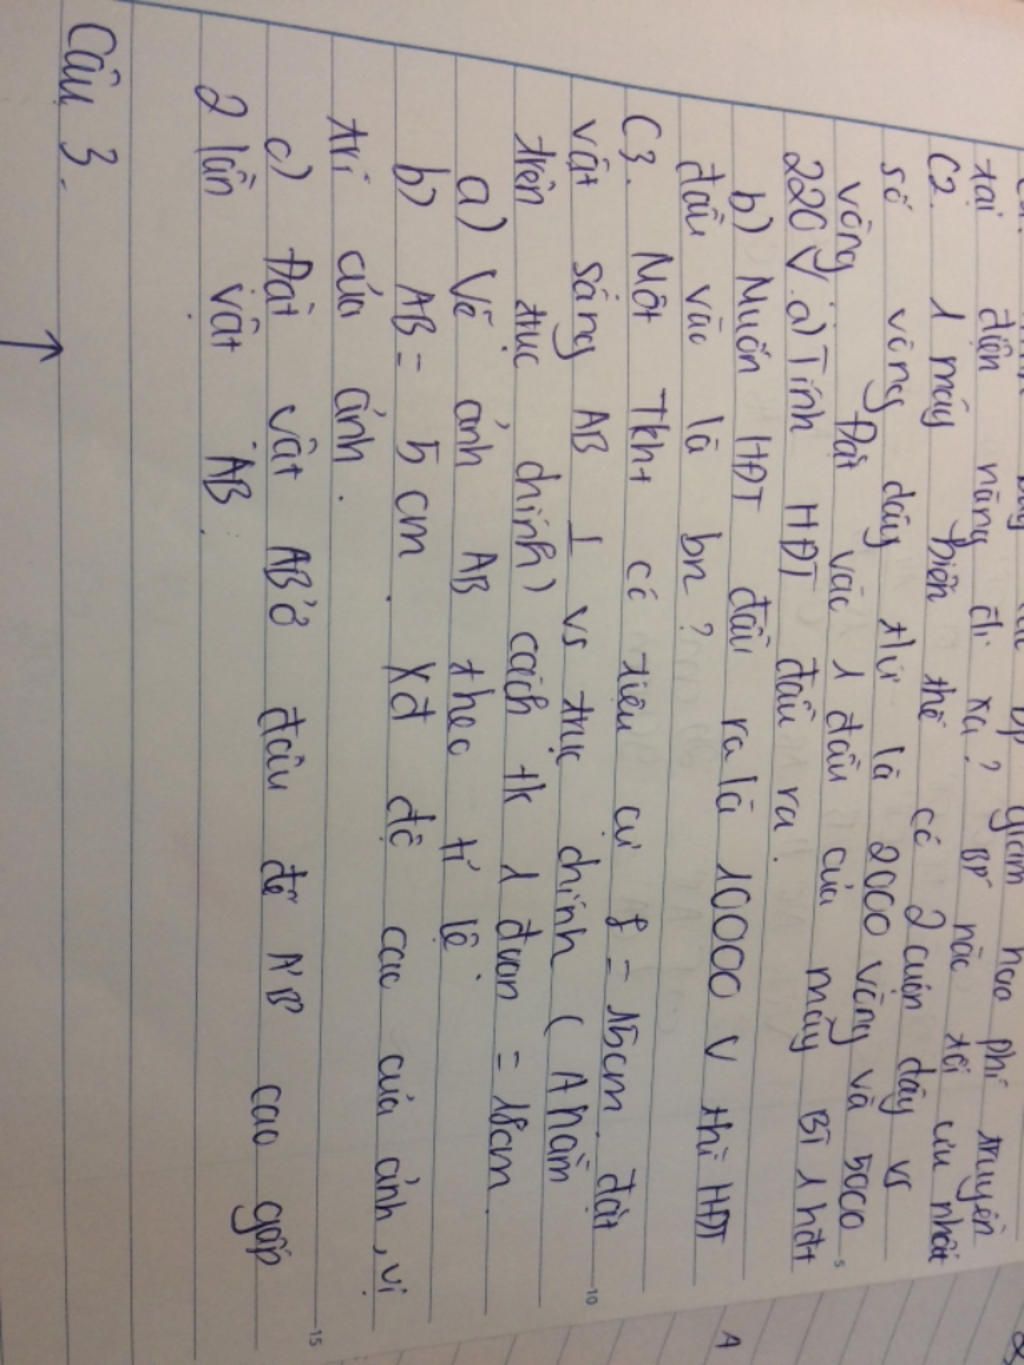 tại điện năng đi xa? BP nào tối ưu nhất
C2. 1 máy biến thế có 2 cuộn dây vs
số vòng dây thứ là 2000 vòng và 5000
vòng Đặt vào 1 đầu của máy BT 1 hđt
220V. a) Tính HĐT đầu ra.
b) Muốn HĐT đầu ra là 10000 V thì HĐT
đầu vào là bn?
C3. Một Tkht có tiêu cự f = 15cm. đặt
vật sáng AB ⊥ vs trục chính (A nằm
trên trục chính) cách tk 1 đoạn = 18cm.
a) Vẽ ảnh AB theo tỉ lệ.
b) AB = 5 cm. Xđ độ cao của ảnh, vị
trí của ảnh.
c) Đặt vật AB ở đâu để A'B' cao gấp
2 lần vật AB.
Câu 3.
5
10
15
A